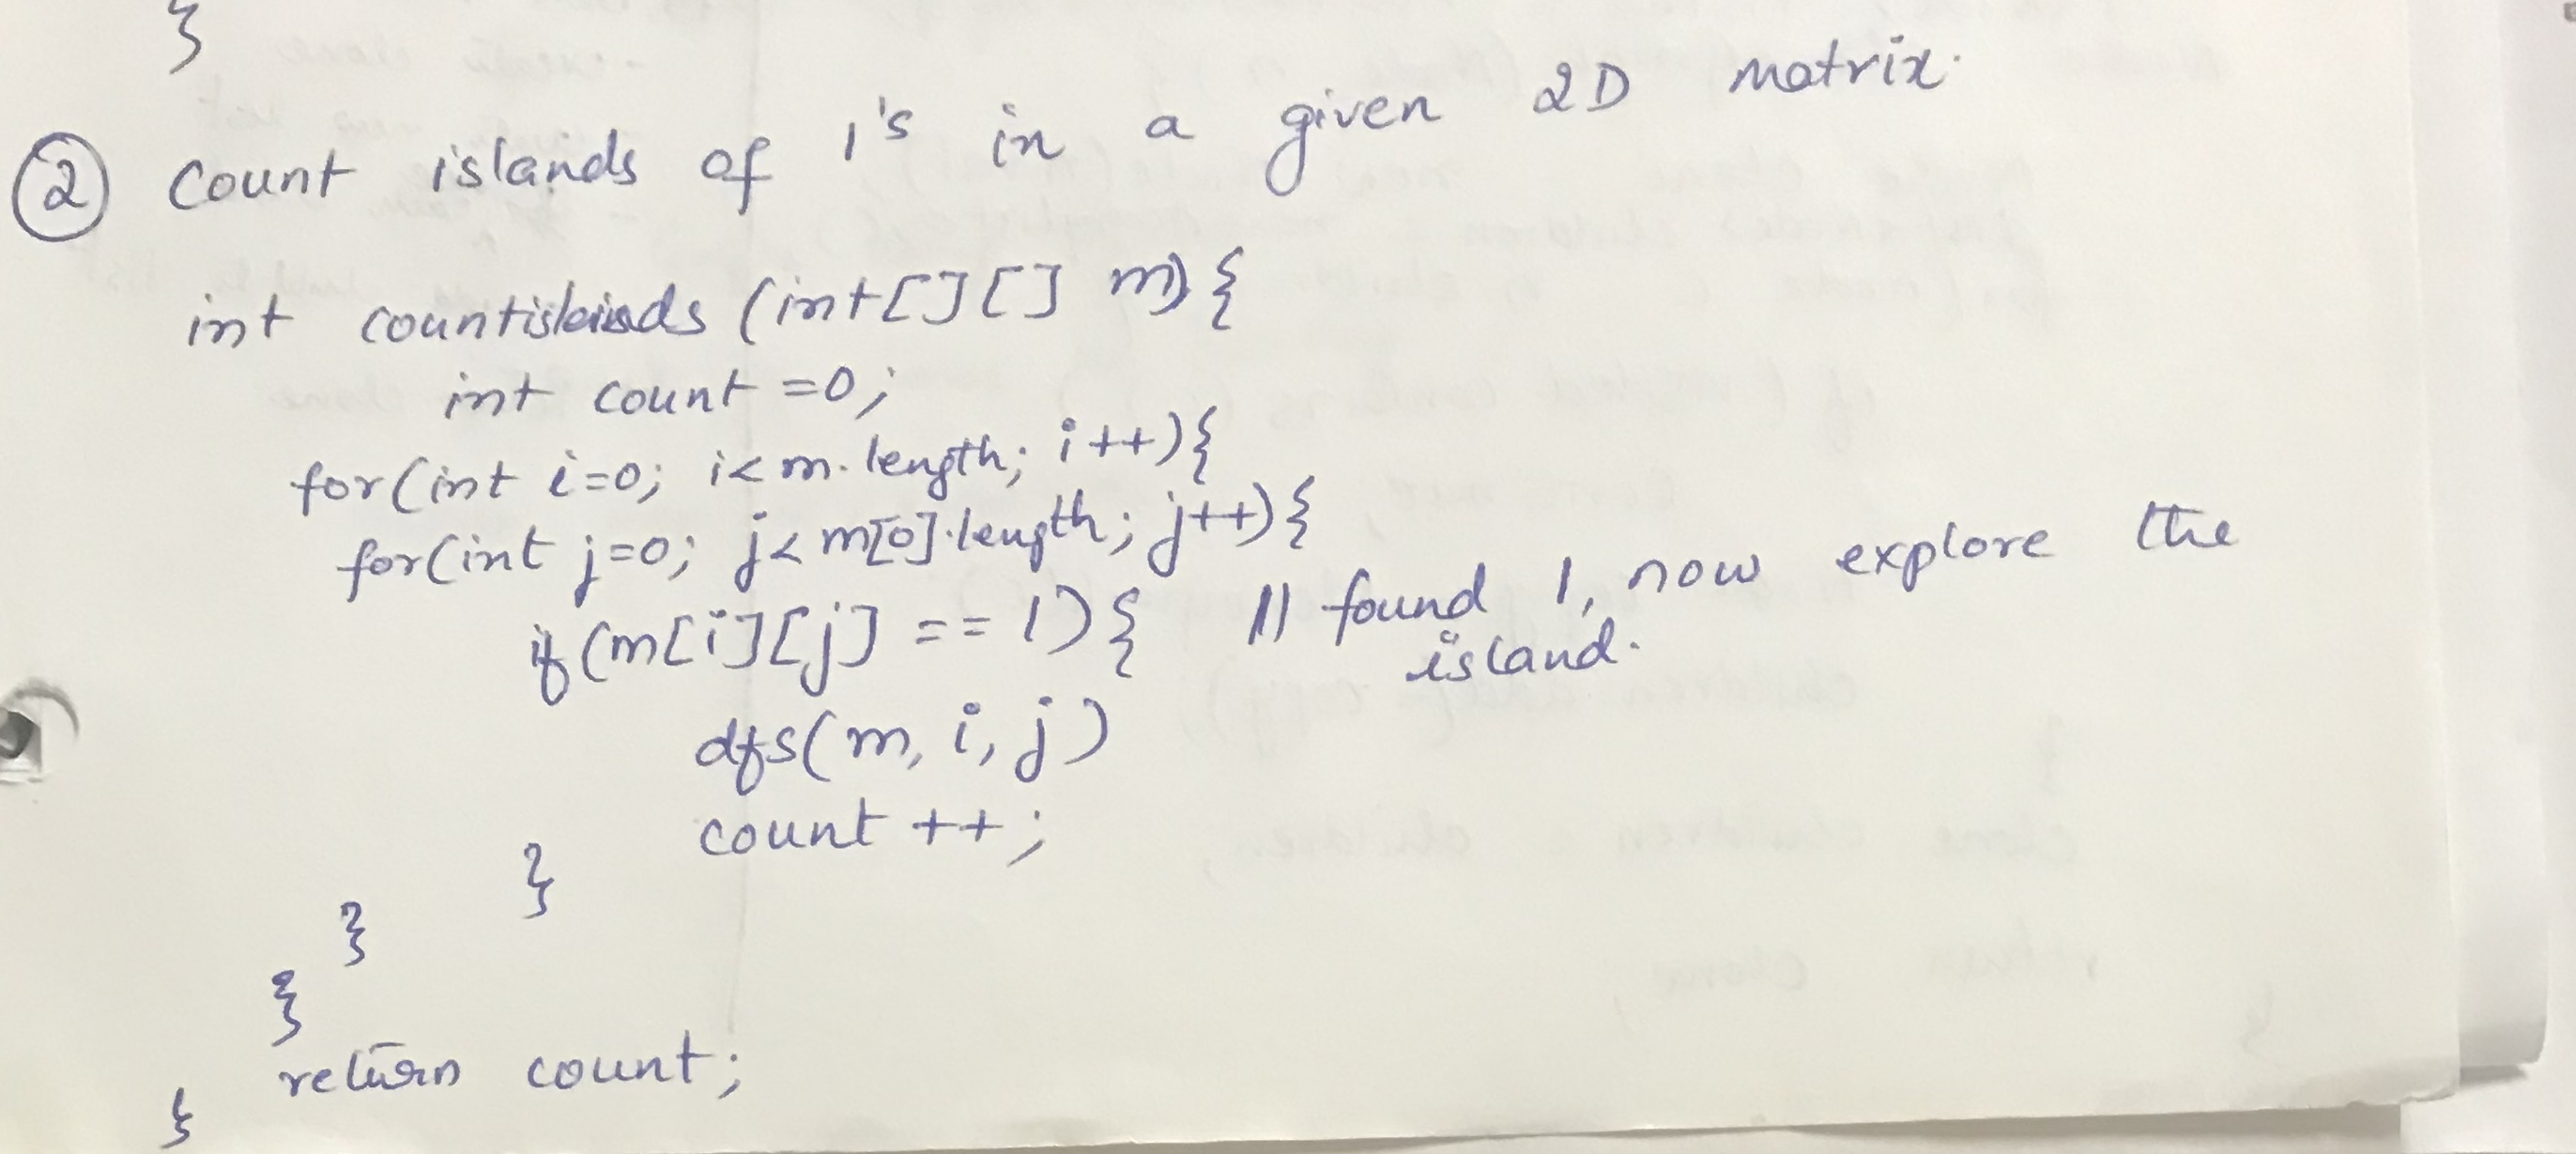 }
② Count islands of 1's in a given 2D matrix.
int countislands (int[][] m) {
int count =0;
for(int i=0; i< m.length; i++){
for(int j=0; j< m[0].length; j++){
if(m[i][j] == 1){ // found 1, now explore the
island.
dfs(m, i, j)
count ++;
}
}
}
return count;
}